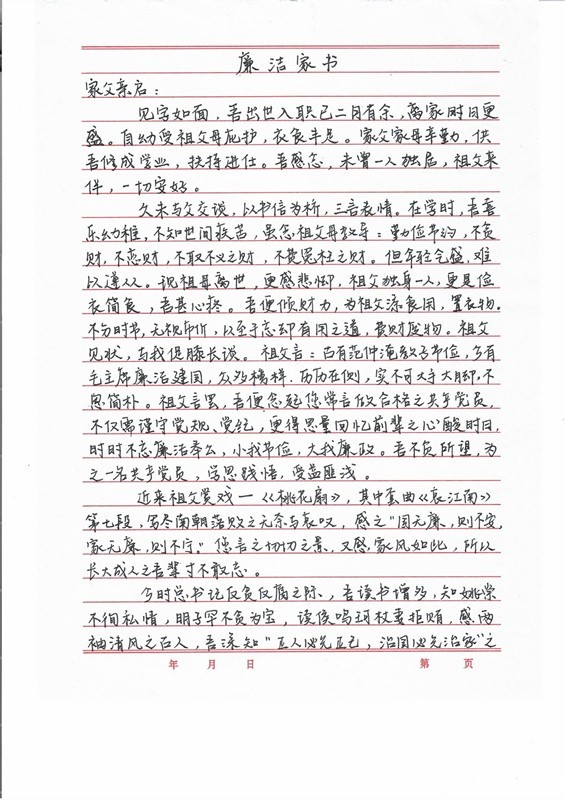 廉洁家书
家父亲启：
见字如面，吾出世入职已二月有余，离家时日更
盛。自幼受祖父母庇护，衣食丰足。家父家母辛勤，供
吾修成学业，扶持进仕。吾感念，未曾一人独居，祖父来
伴，一切安好。
久未与父交谈，以书信为桥，三言表情。在学时，吾喜
乐幼稚，不知世间疾苦，虽念祖父母教导：勤俭节约，不贪
财，不恋财，不取不义之财，不费冤枉之财。但年轻气盛，难
以遵从。况祖母离世，更感悲恸，祖父独身一人，更是俭
衣简食，吾甚心疼。吾便倾财力，为祖父添衣用，置衣物。
不分时书，无视市价，以至于忘却有用之道，费财废物。祖父
见状，与我促膝长谈。祖父言：古有范仲淹教子节俭，今有
毛主席廉洁建国，众多榜样，历历在侧，实不可大手大脚，不
思简朴。祖父言罢，吾便念起您常言做合格之共产党员，
不仅需谨守党规、党纪，更得思量回忆前辈之心酸时日，
时时不忘廉洁奉公，小我节俭，大我廉政。吾不负所望，为
之一名共产党员，学思践悟，受益匪浅。
近来祖父赏戏一《桃花扇》，其中套曲《哀江南》
第七段，写尽南朝落败之无奈与哀叹，感之“国无廉，则不安，
家无廉，则不宁。”您言之切切之景，又感家风如此，所以
长大成人之吾辈才不敢忘。
今时总书记反贪反腐之际，吾读书增多，知姚崇
不徇私情，明子罕不贪为宝，读侯鸣珂权妻拒贿，感两
袖清风之古人，吾深知“正人必先正己，治国必先治家”之
年 月 日
第 页